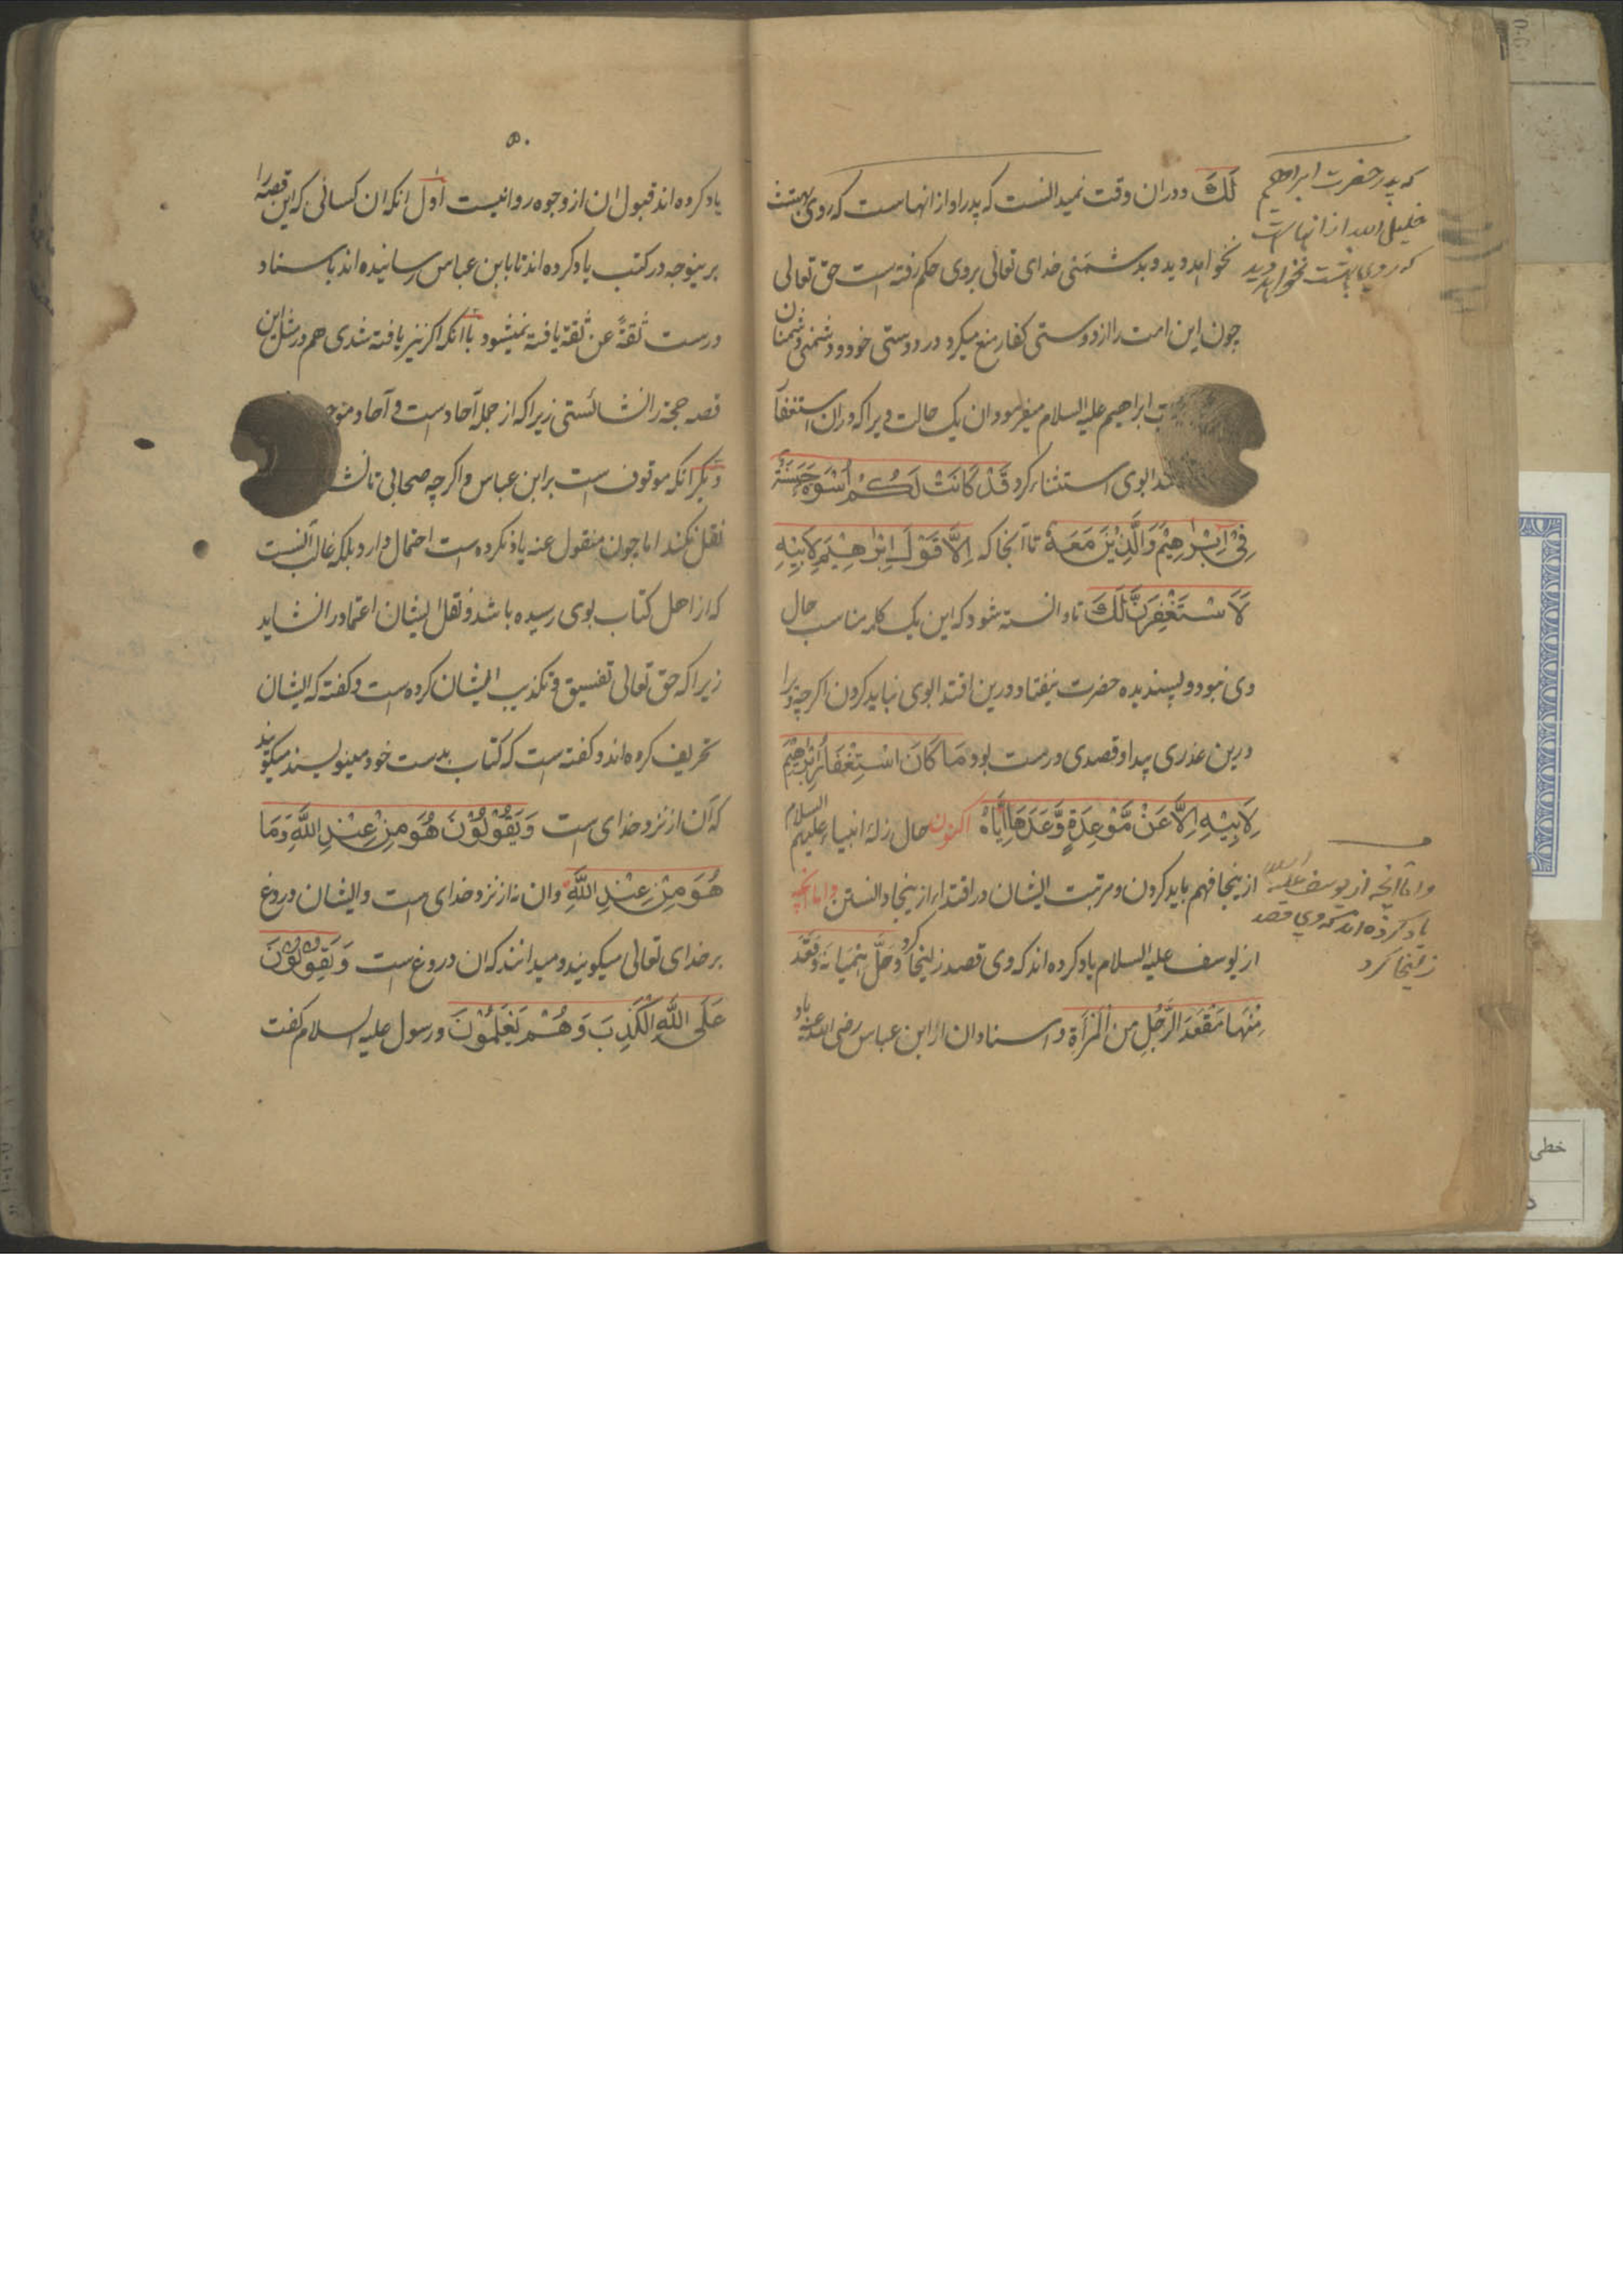 لَكَ ودران وقت نمیدانست که پدر او از انهاست که روی بهشت
نخواهد دید و بدشمنی خدای تعالی بروی حکم رفته است حق تعالی
چون این امت را از دوستی کفار منع میکرد در دوستی خود و دشمنی دشمنان
ابراهیم علیه السلام میفرمود ان یک حالت ویرا که دران استغفا
بوی استثناء کرد قَدْ كَانَتْ لَكُمْ أُسْوَةٌ حَسَنَةٌ
فِيْ اِبْرٰهِيْمَ وَالَّذِيْنَ مَعَهٗ تا آنجا که اِلَّا قَوْلَ اِبْرٰهِيْمَ لِاَبِيْهِ
لَاَسْتَغْفِرَنَّ لَكَ تا دانسته شود که این یک کلمه مناسب حال
وی نبود و پسندیده حضرت نیفتاد و درین اقتدا بوی نباید کردن اکرچه ویرا
درین عذری پیدا و قصدی درست بود مَا كَانَ اسْتِغْفَارُ اِبْرٰهِيْمَ
لِاَبِيْهِ اِلَّا عَنْ مَّوْعِدَةٍ وَّعَدَهَا اِيَّاهُ اکنون حال زلهٔ انبیاء علیهم السلام
ازینجا فهم باید کردن و مرتبت ایشان در اقتدا ازینجا دانستن و اما انچه
از یوسف علیه السلام یاد کرده اند که وی قصد زلیخا کرد وَحَلَّ هِمْيَانَهٗ وَقَعَدَ
مِنْهَا مَقْعَدَ الرَّجُلِ مِنَ الْمَرْأَةِ و اسناد ان از ابن عباس رضی الله عنه یاد
که پدر حضرت ابراهیم
خلیل الله از انهاست
که روی بهشت نخواهد دید
و اما آنچه از یوسف علیه السلام
یاد کرده اند که وی قصد
زلیخا کرد
۵۰
یاد کرده اند قبول ان از وجوه روا نیست اول انکه ان کسانی که این قصه را
برینوجه در کتب یاد کرده اند تا بابن عباس رسانیده اند باسناد
درست ثقةً عن ثقة یافته نمیشود با انکه اکر نیز یافته شدی هم در مثل این
قصه حجة را نشائستی زیرا که از جمله آحاد است و آحاد
دیکر انکه موقوف است بر ابن عباس و اکرچه صحابی
نقل نکند اما چون منقول عنه یاد نکرده است احتمال دارد بلکه غالب آنست
که از اهل کتاب بوی رسیده باشد و نقل ایشان اعتماد را نشاید
زیرا که حق تعالی تفسیق و تکذیب ایشان کرده است و کفته که ایشان
تحریف کرده اند و کفته است که کتاب بدست خود مینویسند میکویند
که آن از نزد خدای است وَيَقُوْلُوْنَ هُوَ مِنْ عِنْدِ اللّٰهِ وَمَا
هُوَ مِنْ عِنْدِ اللّٰهِ وان نه از نزد خدای است و ایشان دروغ
بر خدای تعالی میکویند و میدانند که ان دروغ است وَيَقُوْلُوْنَ
عَلَى اللّٰهِ الْكَذِبَ وَهُمْ يَعْلَمُوْنَ و رسول علیه السلام کفت
خطی